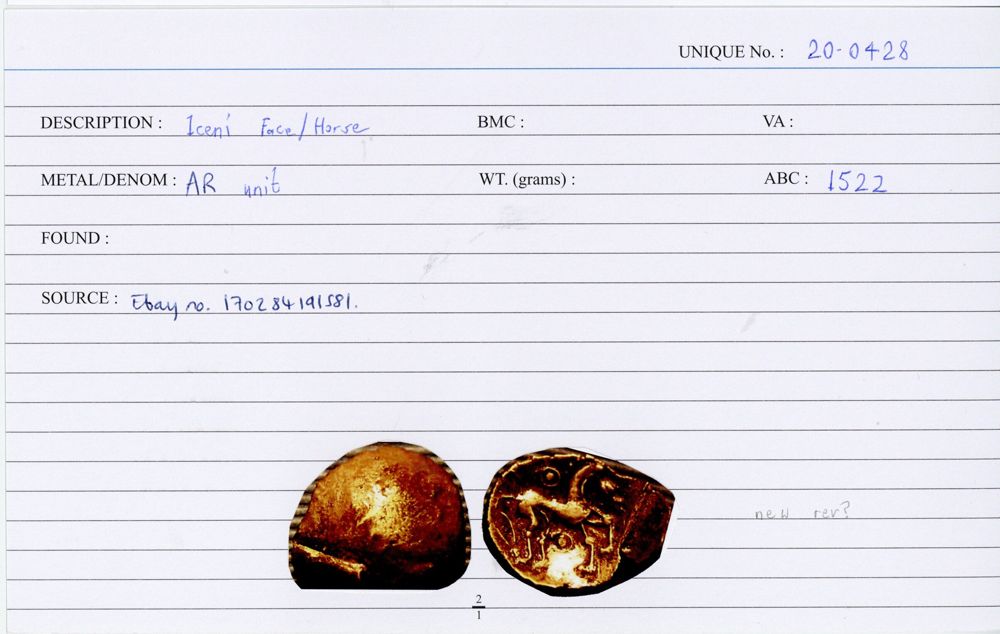 UNIQUE No. : 20-0428
DESCRIPTION : Iceni Face/Horse BMC : VA :
METAL/DENOM : AR unit WT. (grams) : ABC : 1522
FOUND :
SOURCE : Ebay no. 170284191581.
new rev?
2
1